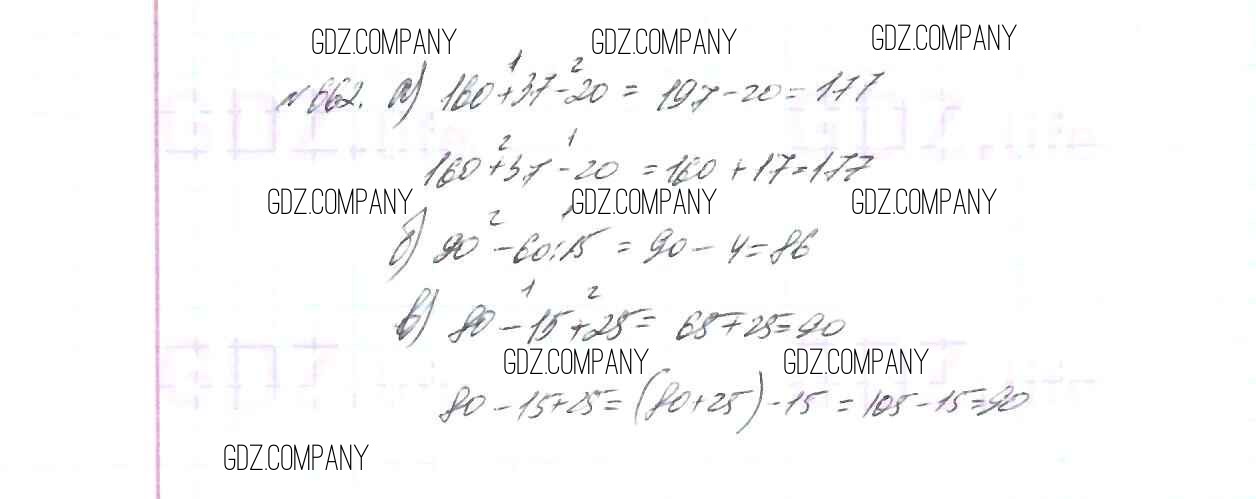 GDZ.COMPANY GDZ.COMPANY GDZ.COMPANY
№662. а) 160+37-20 = 197-20=177
160+37-20 = 160+17=177
GDZ.COMPANY GDZ.COMPANY GDZ.COMPANY
б) 90-60:15 = 90-4=86
в) 80-15+25= 65+25=90
GDZ.COMPANY GDZ.COMPANY
80-15+25=(80+25)-15=105-15=90
GDZ.COMPANY